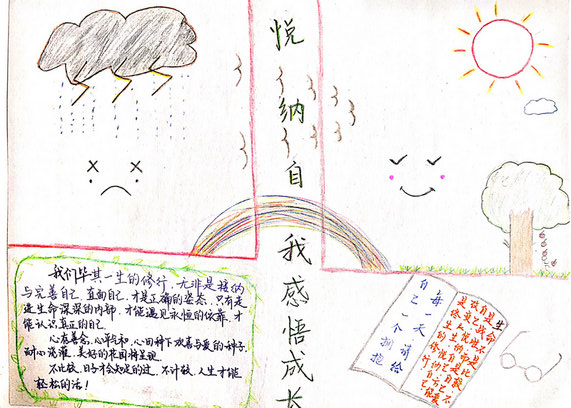 悦纳自我感悟成长
我们毕其一生的修行,无非是接纳
与完善自己,直面自己,才是正确的姿态,只有走
进生命深深的内部,才能遇见永恒的依靠,才
能认识真正的自己
心存善念,心平气和,心田种下友善与爱的种子,
耐心浇灌,美好的花园将呈现.
不比较,日子才会知足的过,不计较,人生才能
轻松的活!
每一天请给
自己一个拥抱